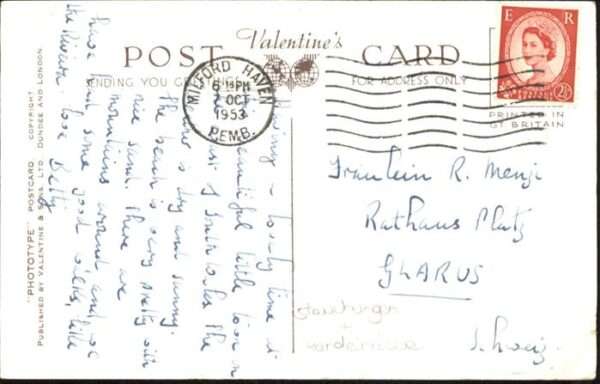 POST Valentine's CARD
SENDING YOU GREETINGS
FOR ADDRESS ONLY
MILFORD HAVEN
6 PM
OCT
1953
PEMB.
E R
2½
PRINTED IN
GT BRITAIN
"PHOTOTYPE" POSTCARD COPYRIGHT
PUBLISHED BY VALENTINE & SONS, LTD. DUNDEE AND LONDON.
lovely time in
beautiful little town on
of South Wales the
is dry and sunny.
The beach is very pretty with
nice sand. There are
mountains around and we
have had some good walks, like
the
love Betty
Fräulein R. Menzi
Rathaus Platz
GLARUS
Schweiz